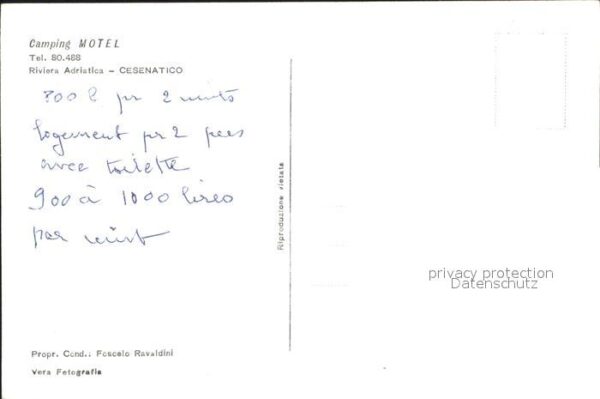 Camping MOTEL
Tel. 80.488
Riviera Adriatica - CESENATICO
pr 2 nuits
logement pr 2 pers
avec toilette
900 à 1000 lires
par nuit
Riproduzione vietata
privacy protection
Datenschutz
Propr. Cond.: Foscolo Ravaldini
Vera Fotografia